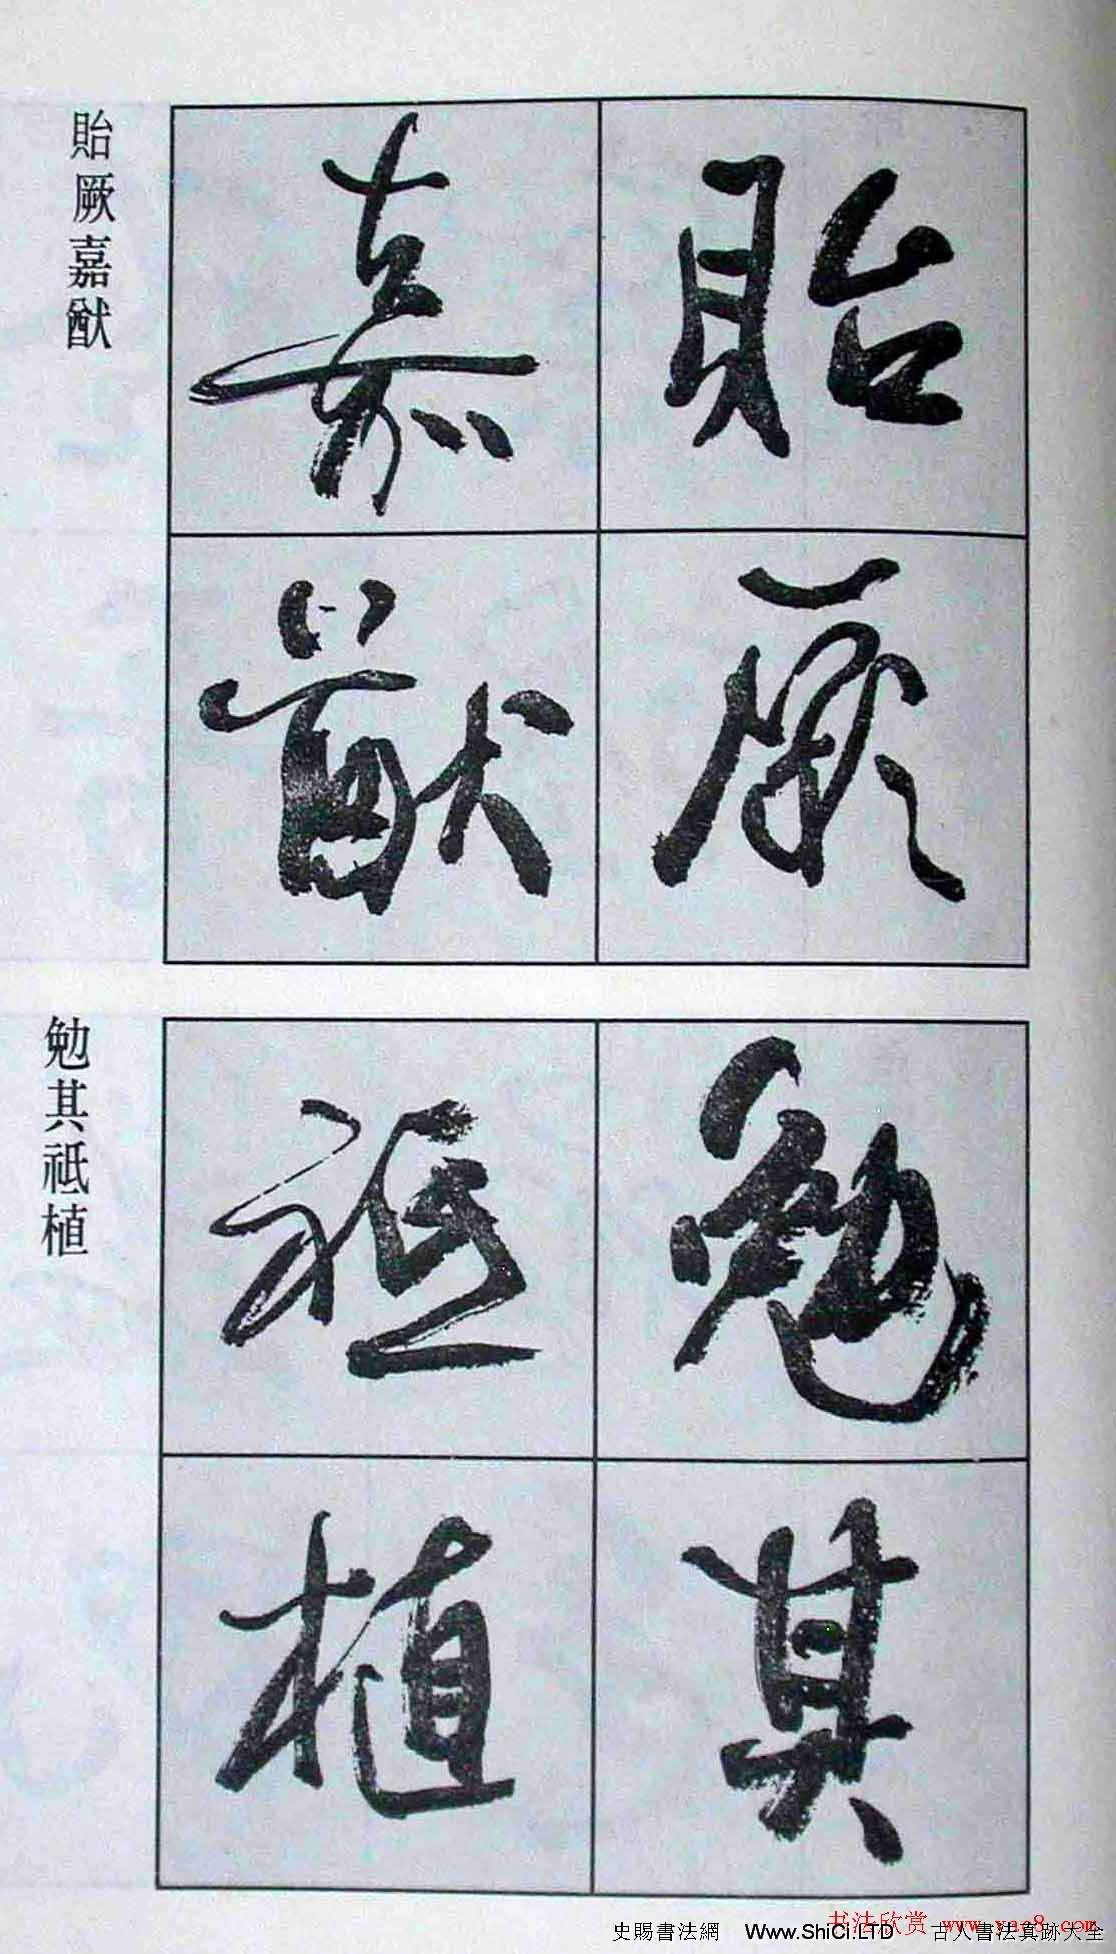 貽厥
嘉猷
貽厥嘉猷
勉其
祗植
勉其祗植
书法欣赏 www.yac8.com
史賜書法網 Www.ShiCi.LTD 古人書法真跡大全